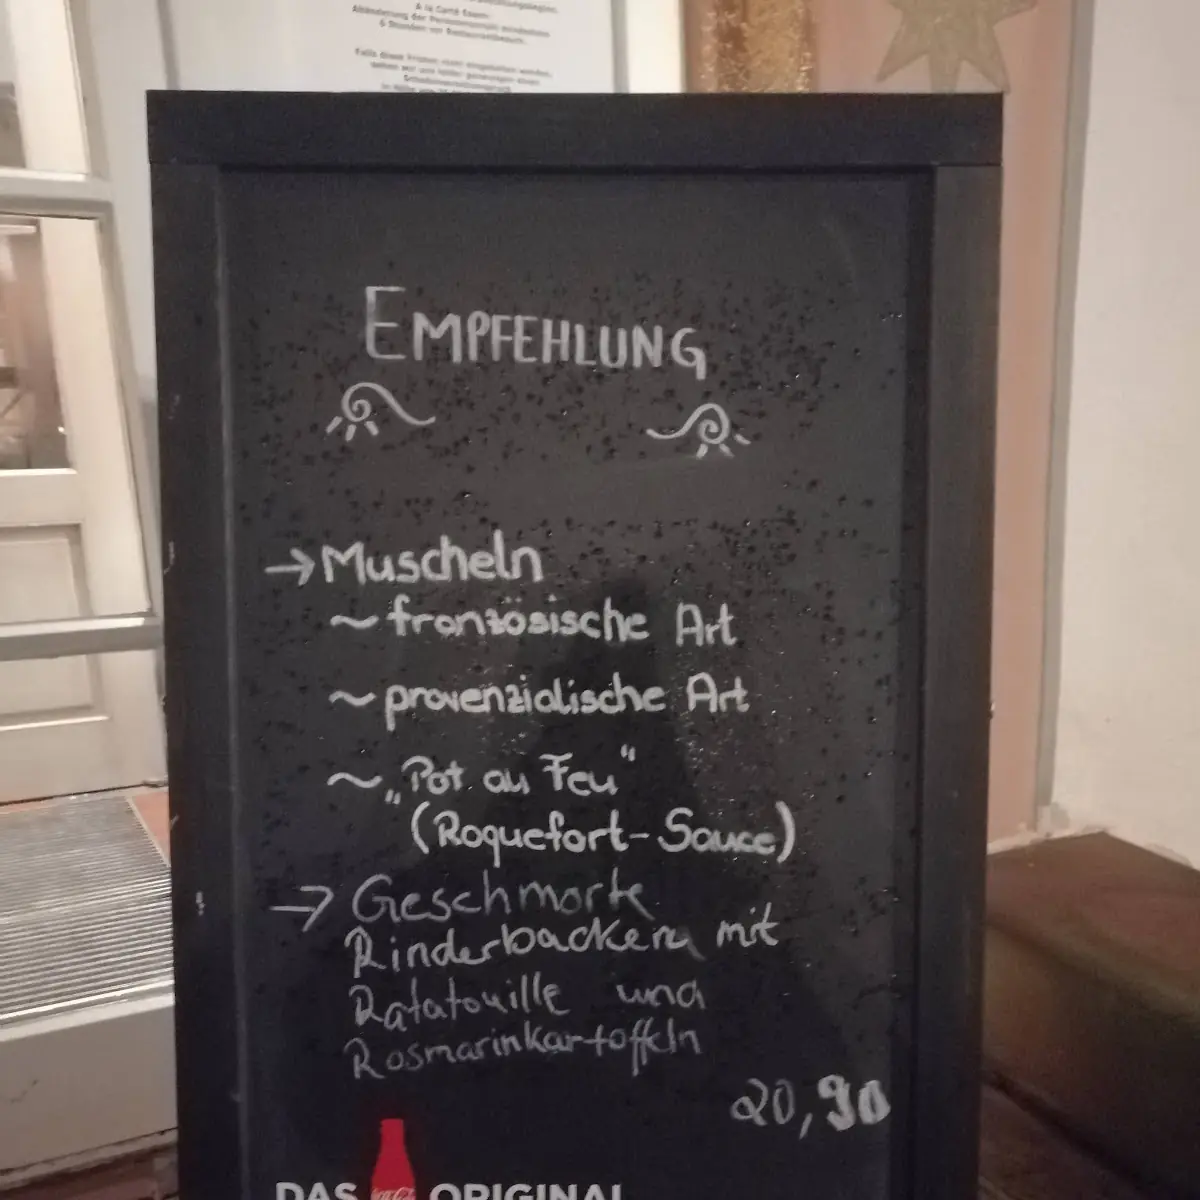 À la Carte Essen:
Abänderung der Personenzahl mindestens
6 Stunden vor Restaurantbesuch.
Falls diese Fristen nicht eingehalten werden,
sehen wir uns leider gezwungen einen
EMPFEHLUNG
→ Muscheln
~ französische Art
~ provenzialische Art
~ „Pot au Feu"
(Roquefort-Sauce)
→ Geschmorte
Rinderbacken mit
Ratatouille und
Rosmarinkartoffeln
20,90
DAS Coca-Cola ORIGINAL